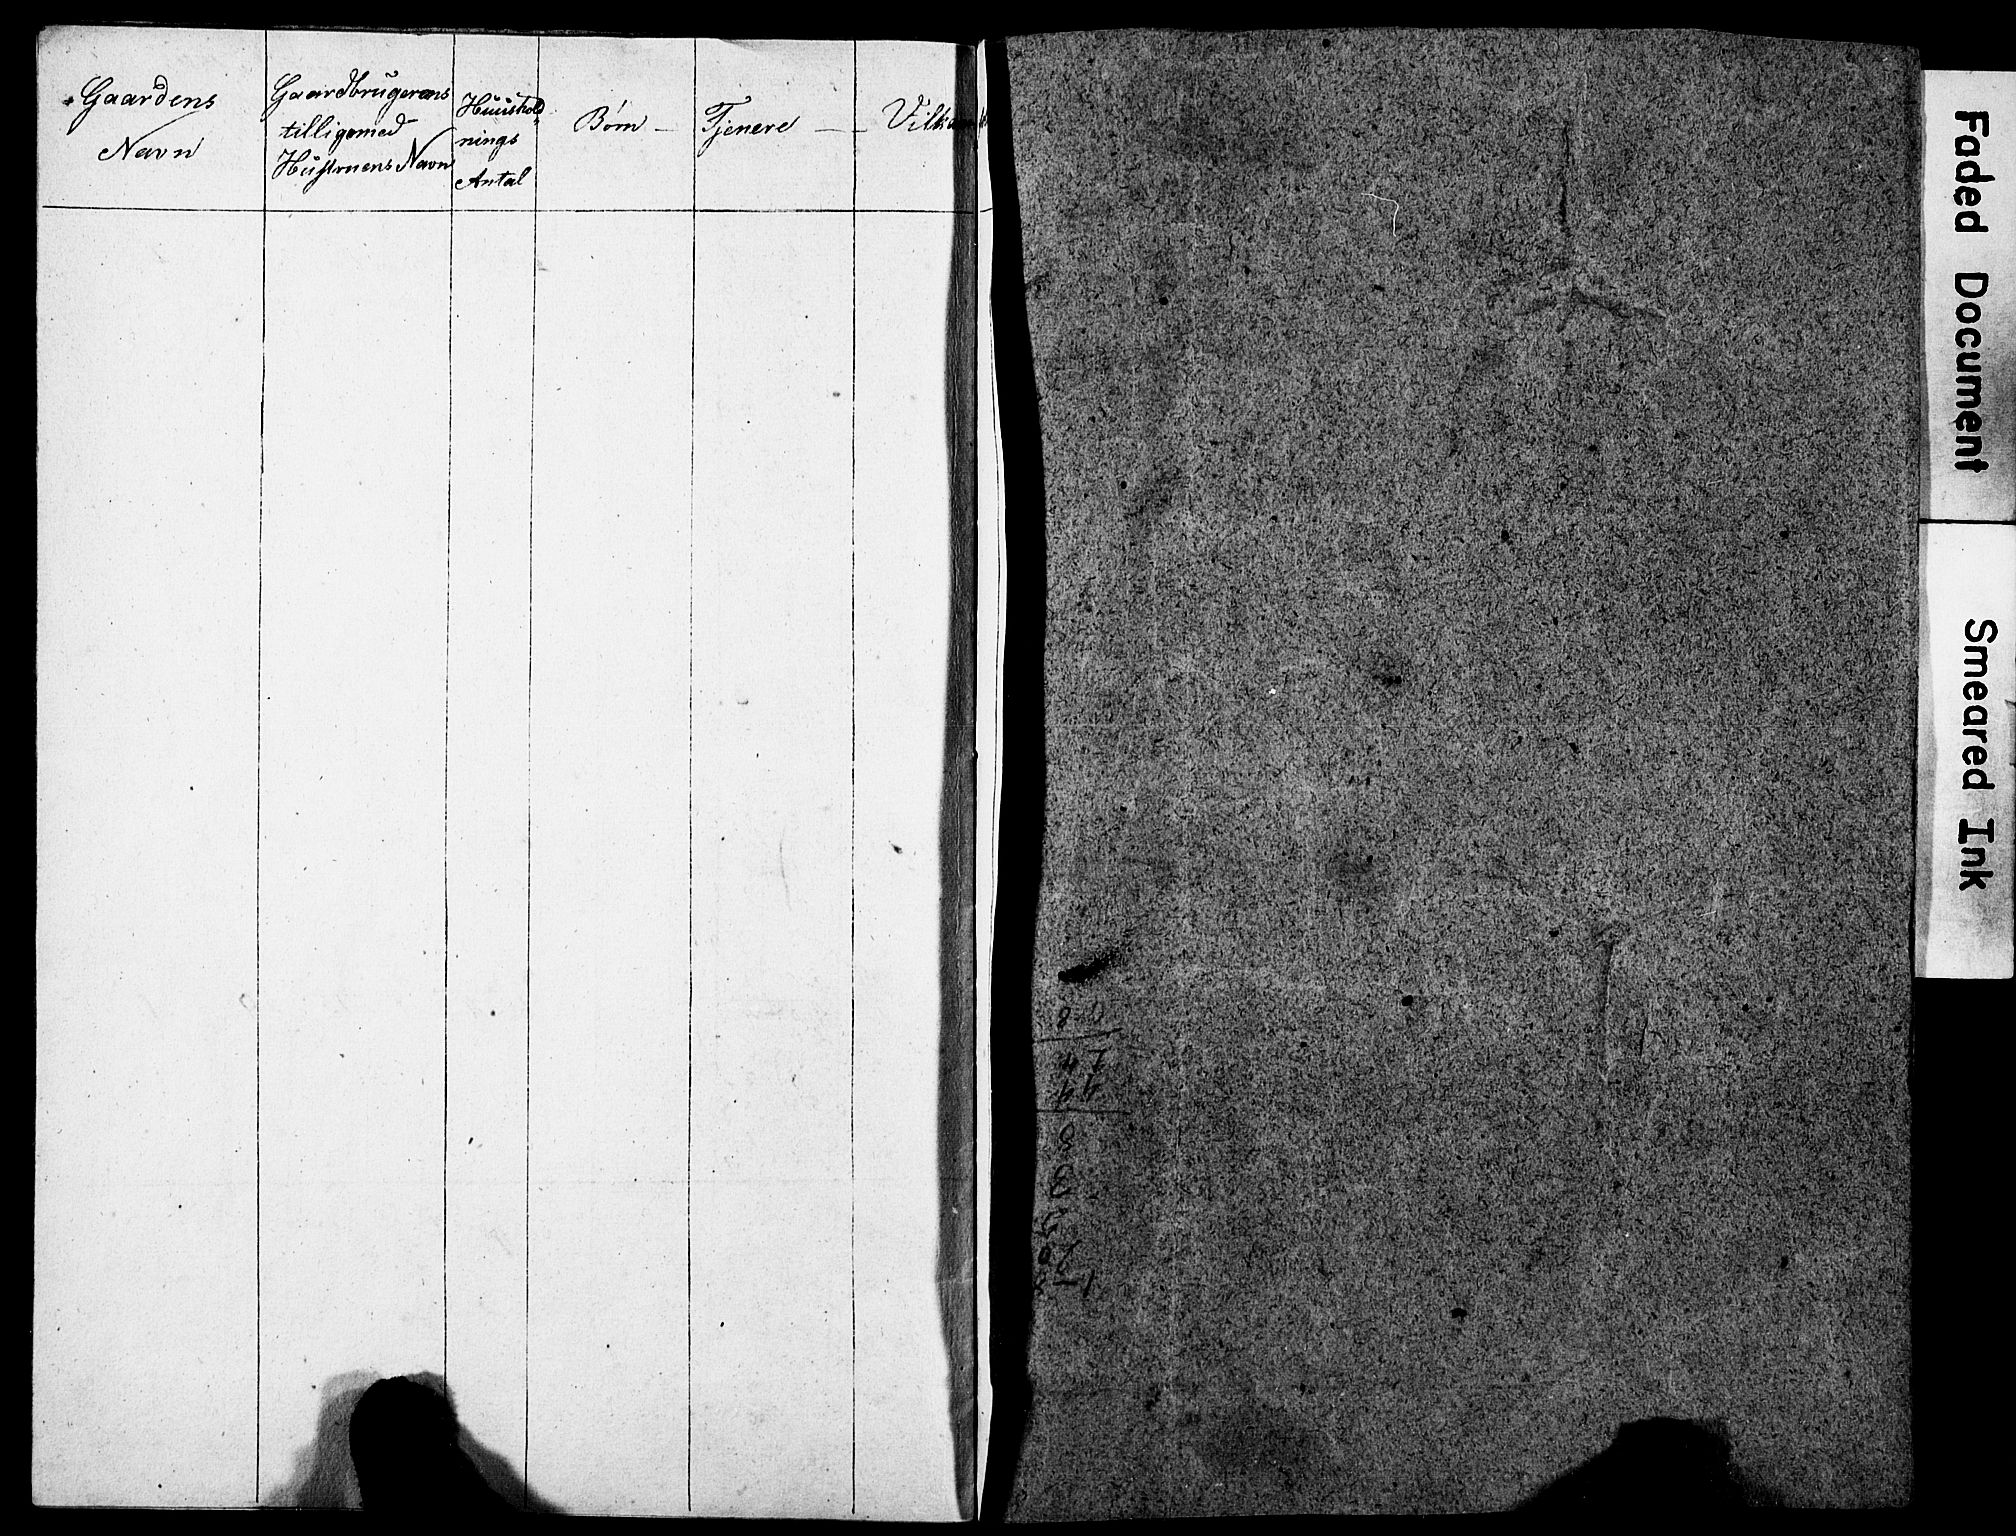 Gaardens
Navn
Gaardbrugerens
tilligemed
Hustruens Navn
Huushold-
nings
Antal
Børn —
Tjenere —
Faded Document
Smeared Ink